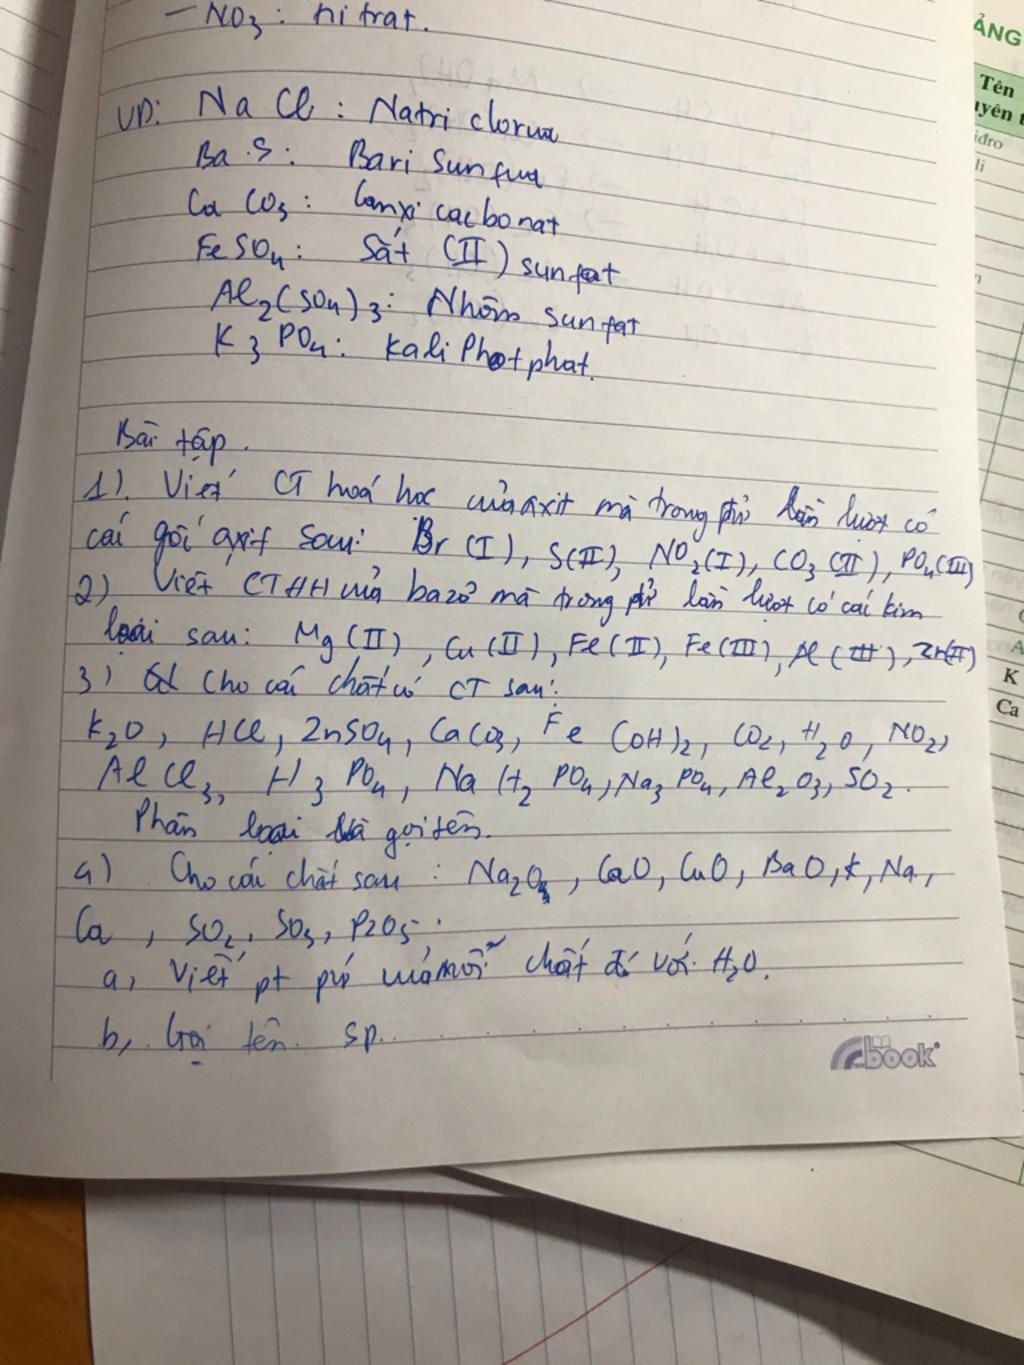 – NO3 : nitrat.
VD: NaCl : Natri clorua
BaS : Bari sunfua
CaCO3 : Canxi cacbonat
FeSO4 : Sắt (II) sunfat
Al2(SO4)3 : Nhôm sunfat
K3PO4 : Kali Photphat.
Bài tập.
1). Viết CT hoá học của axit mà trong ptử lần lượt có
các gốc axit sau: Br (I), S(II), NO2(I), CO3(II), PO4(III)
2) Viết CTHH của bazơ mà trong ptử lần lượt có các kim
loại sau: Mg(II), Cu(II), Fe(II), Fe(III), Al(III), Zn(II)
3) Cho các chất có CT sau:
K2O, HCl, ZnSO4, CaCO3, Fe(OH)2, CO2, H2O, NO2,
AlCl3, H3PO4, NaH2PO4, Na3PO4, Al2O3, SO2.
Phân loại và gọi tên.
4) Cho các chất sau : Na2O, CaO, CuO, BaO, K, Na,
Ca, SO2, SO3, P2O5.
a, Viết pt pứ của mỗi chất đối với H2O.
b, Gọi tên sp.
book
ẢNG
Tên
uyên t
iđro
li
A
K
Ca